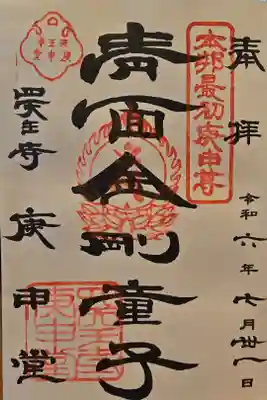 奉拝
令和六年七月丗一日
本邦最初庚申尊
青面金剛童子
四天王寺
庚申堂